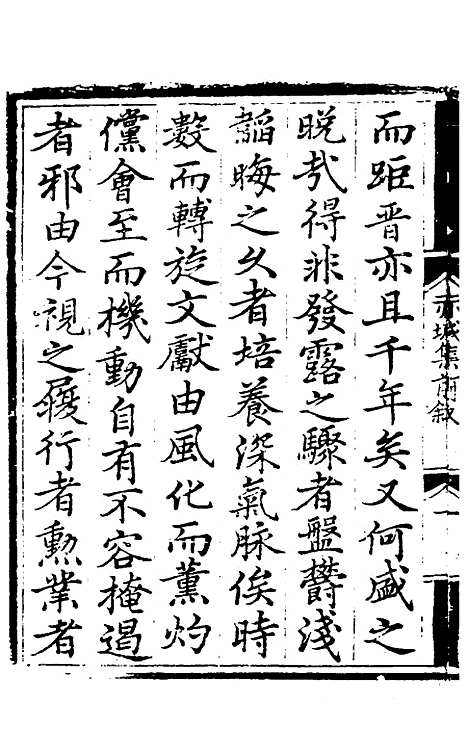 赤城集前叙
一
而距晋亦且千年矣又何盛之
晚㢤得非發露之驟者盤欝淺
韜晦之久者培養深氣脉俟時
數而轉旋文獻由風化而薰灼
儻會至而機動自有不容掩遏
者邪由今視之履行者勲業者